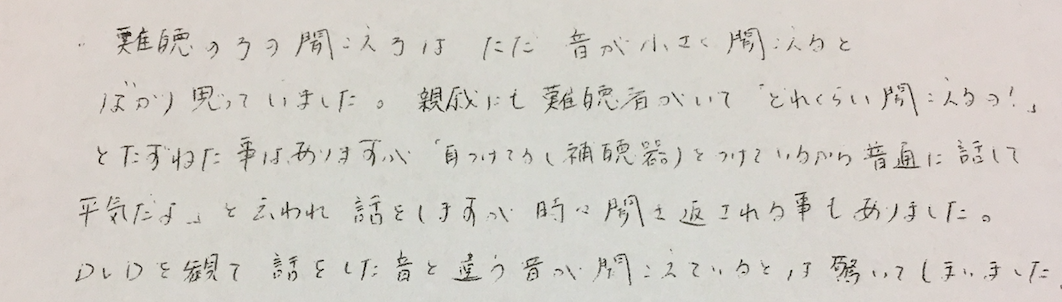 難聴の方の聞こえ方は ただ 音が小さく聞こえると
ばかり思っていました。親戚にも難聴者がいて「どれくらい聞こえるの!」
とたずねた事はありますが「耳つけてか(補聴器)をつけているから普通に話して
平気だよ」と云われ 話をしますが 時々聞き返される事もありました。
DVDを観て 話をした音と違う音が聞こえているとは驚いてしまいました